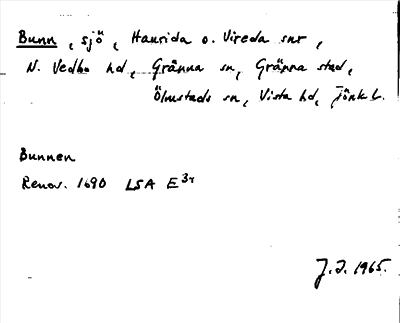 Bunn, sjö, Haurida o. Vireda snr,
N. Vedbo hd, Gränna sn, Gränna stad,
Ölmstads sn, Vista hd, Jönk L.
Bunnen
Renov. 1690 LSA E 3r
J.I. 1965.